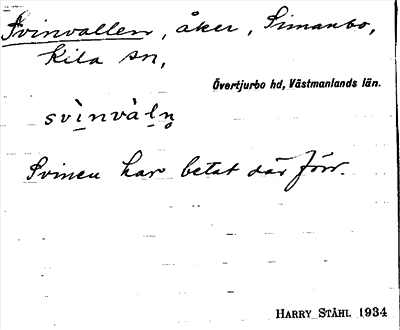 Svinvallen, åker, Simanbo,
Kila sn,
Övertjurbo hd, Västmanlands län.
svìnvàln̥
Svinen har betat där förr.
HARRY STÅHL 1934